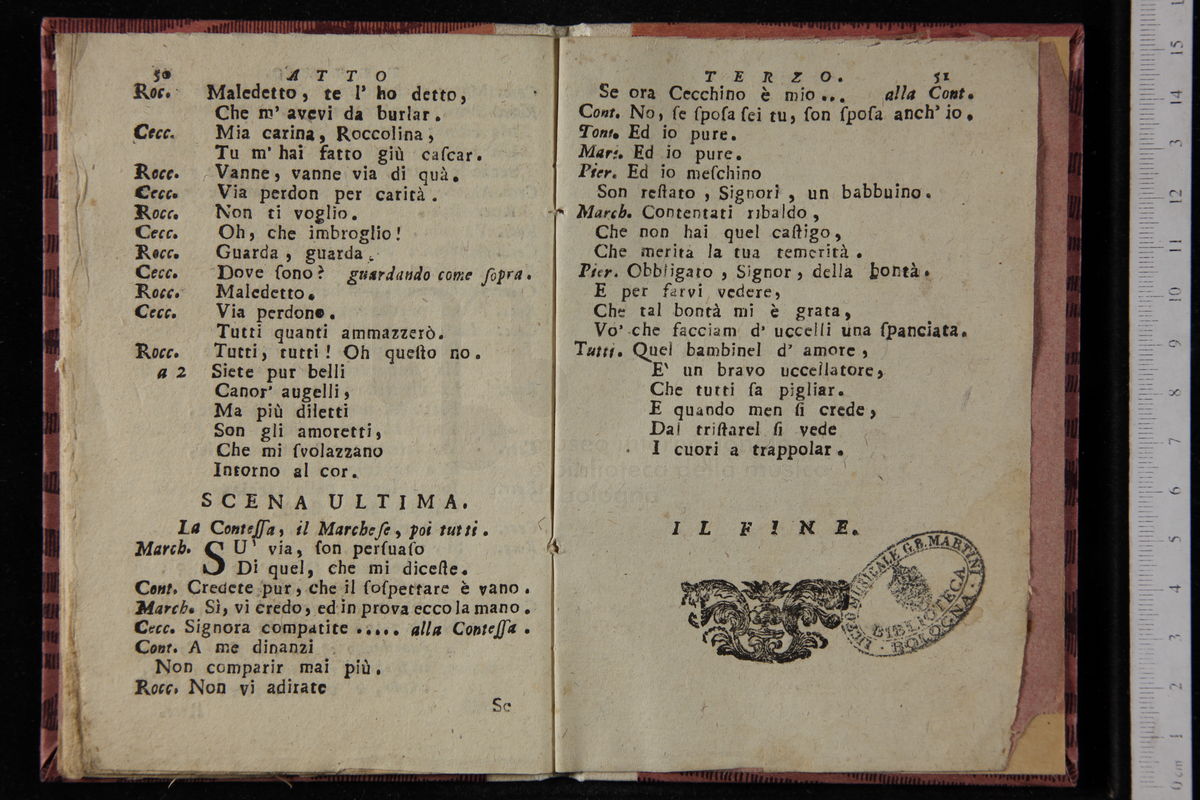 50 ATTO
Roc. Maledetto, te l' ho detto,
Che m' avevi da burlar.
Cecc. Mia carina, Roccolina,
Tu m' hai fatto giù caſcar.
Rocc. Vanne, vanne via di quà.
Cecc. Via perdon per carità.
Rocc. Non ti voglio.
Cecc. Oh, che imbroglio!
Rocc. Guarda, guarda.
Cecc. Dove ſono? guardando come ſopra.
Rocc. Maledetto.
Cecc. Via perdono.
Tutti quanti ammazzerò.
Rocc. Tutti, tutti! Oh queſto no.
a 2 Siete pur belli
Canor' augelli,
Ma più diletti
Son gli amoretti,
Che mi ſvolazzano
Intorno al cor.
SCENA ULTIMA.
La Conteſſa, il Marcheſe, poi tutti.
March. SU' via, ſon perſuaſo
Di quel, che mi diceſte.
Cont. Credete pur, che il ſoſpettare è vano.
March. Sì, vi credo, ed in prova ecco la mano.
Cecc. Signora compatite ..... alla Conteſſa.
Cont. A me dinanzi
Non comparir mai più.
Rocc. Non vi adirate
Se
TERZO. 51
Se ora Cecchino è mio... alla Cont.
Cont. No, ſe ſpoſa ſei tu, ſon ſpoſa anch' io.
Tont. Ed io pure.
Mar. Ed io pure.
Pier. Ed io meſchino
Son reſtato, Signori, un babbuino.
March. Contentati ribaldo,
Che non hai quel caſtigo,
Che merita la tua temerità.
Pier. Obbligato, Signor, della bontà.
E per farvi vedere,
Che tal bontà mi è grata,
Vo' che facciam d' uccelli una ſpanciata.
Tutti. Quel bambinel d' amore,
E' un bravo uccellatore,
Che tutti ſa pigliar.
E quando men ſi crede,
Dal triſtarel ſi vede
I cuori a trappolar.
IL FINE.
LICEO MUSICALE G.B. MARTINI
BIBLIOTECA
BOLOGNA